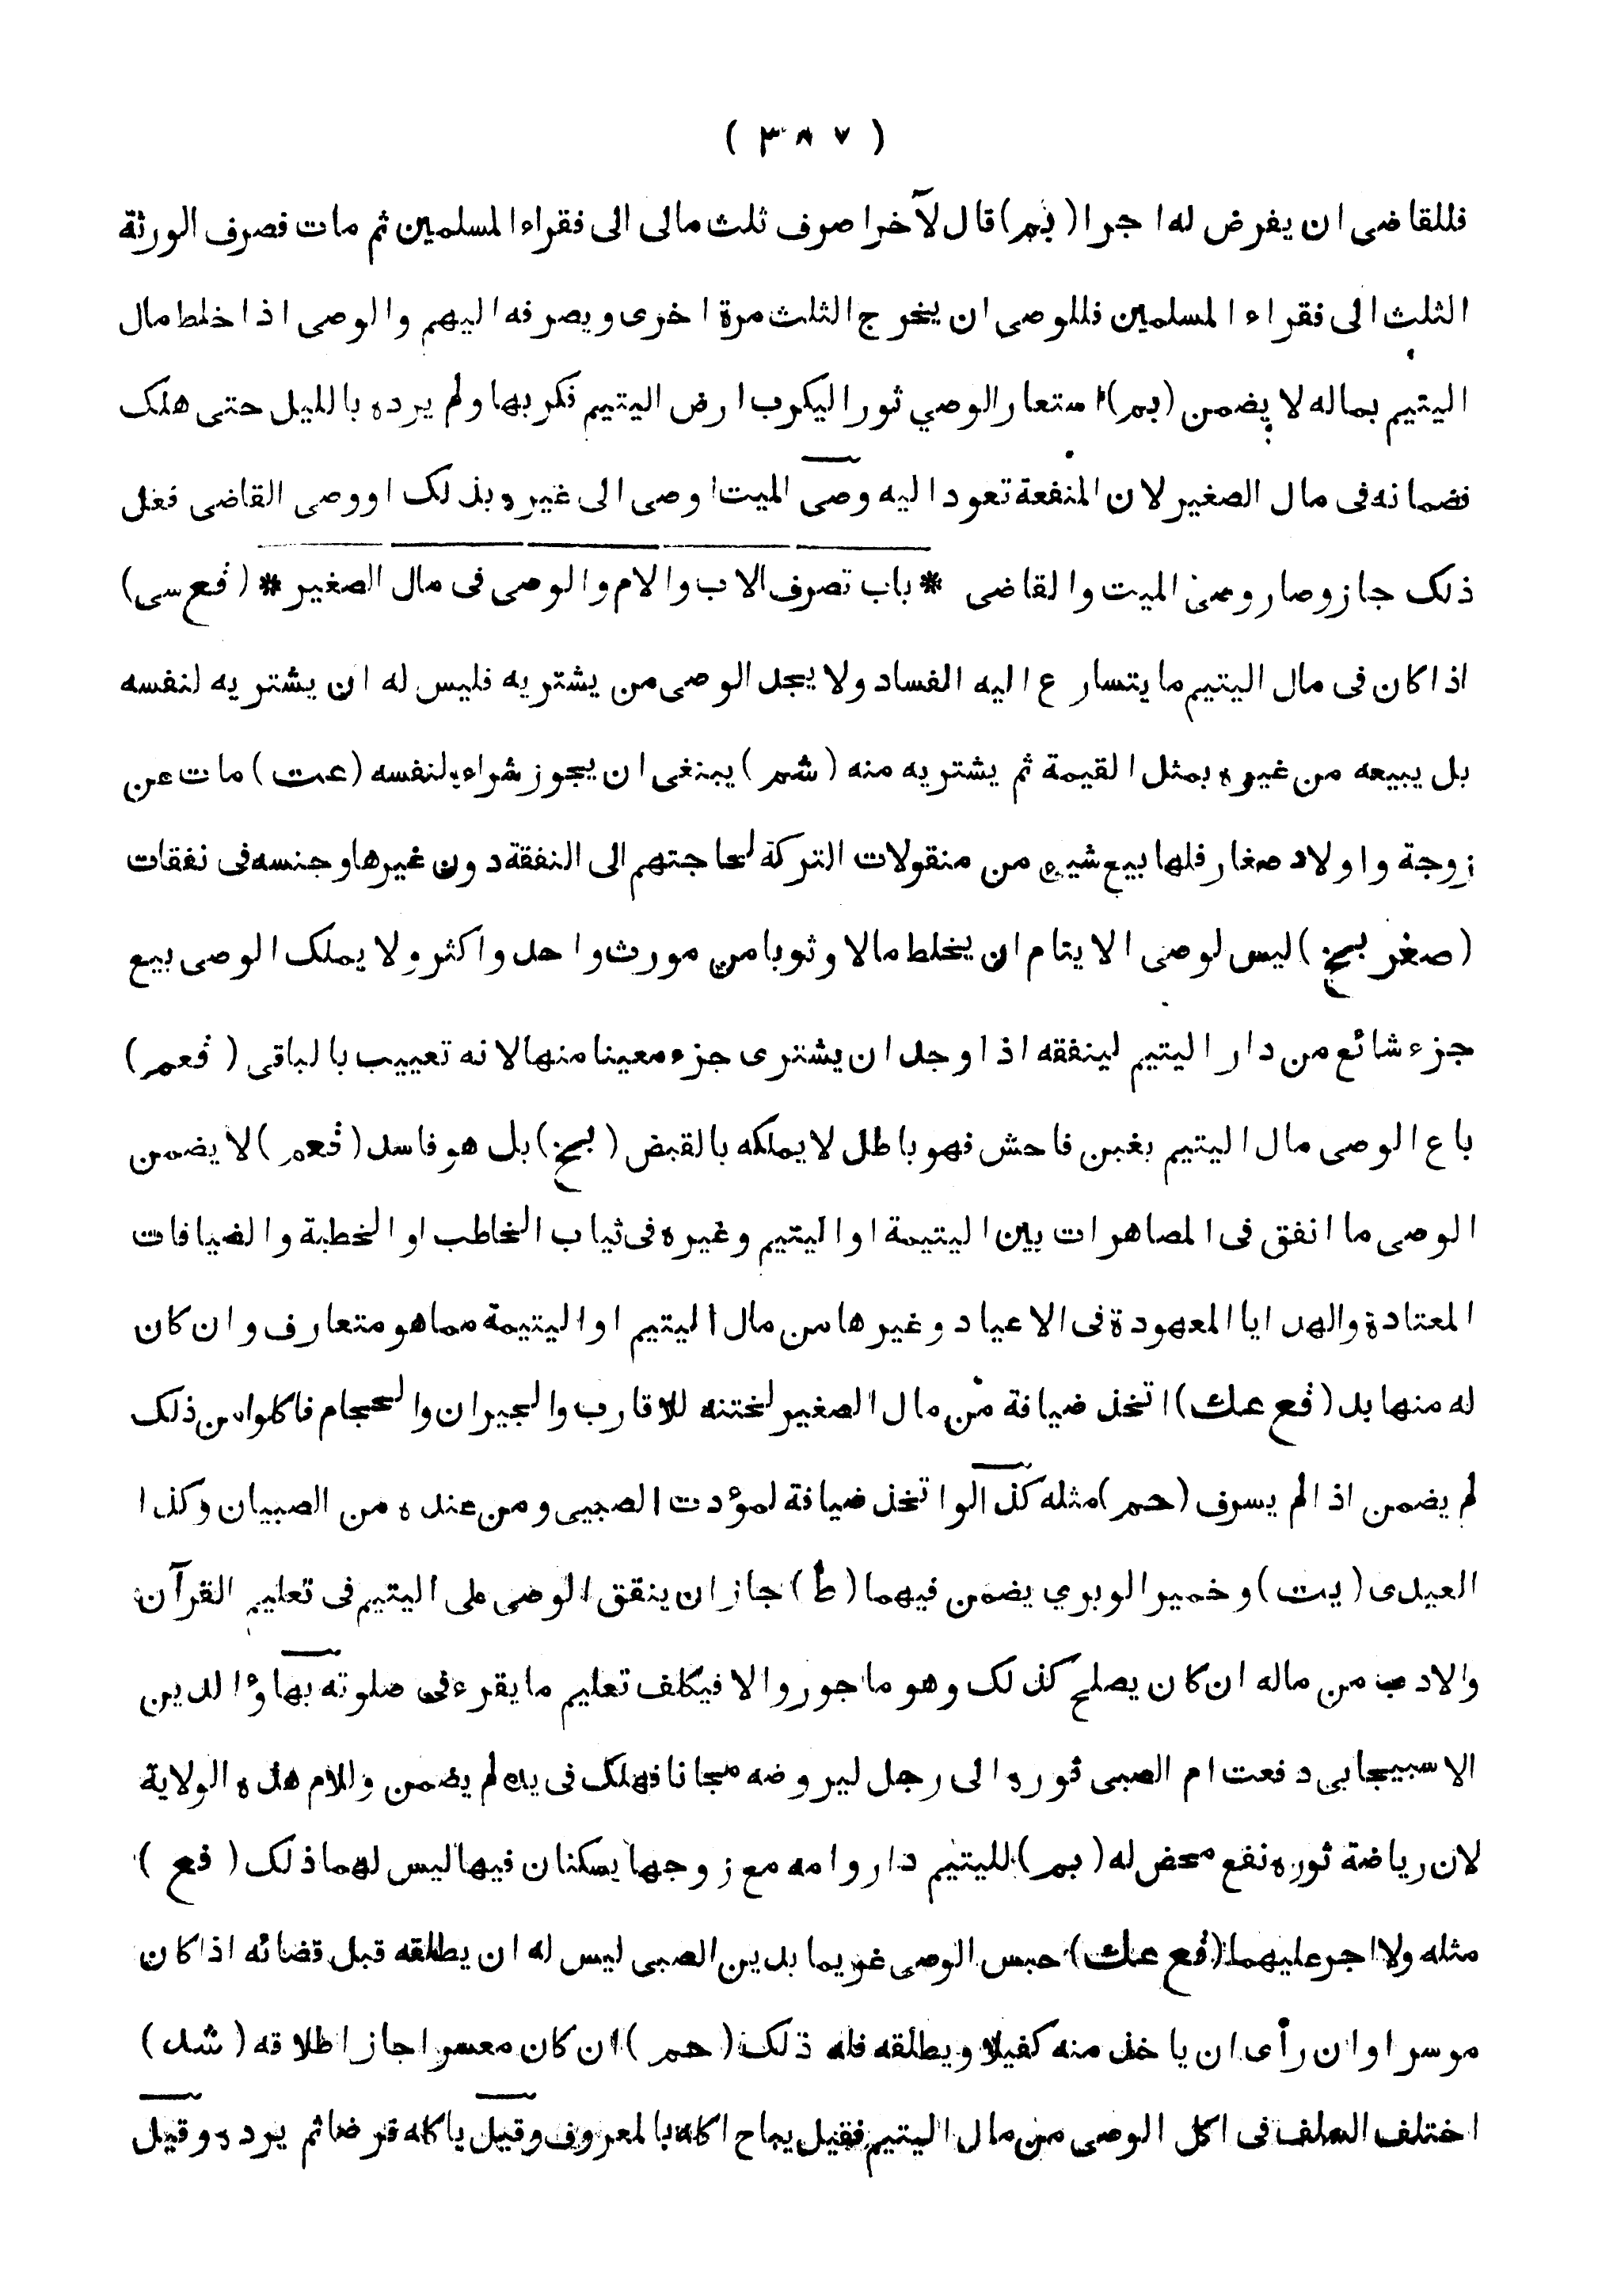 ( ٣٨٧ )
فللقاضى ان يفرض له اجرا (بم) قال لآخر اصرف ثلث مالى الى فقراء المسلمين ثم مات فصرف الورثة
الثلث الى فقراء المسلمين فللوصى ان يخرج الثلث مرة اخرى ويصرفه اليهم والوصى اذا خلط مال
اليتيم بماله لا يضمن (بم) استعار الوصي ثورا ليكرب ارض اليتيم فكربها ولم يرده بالليل حتى هلك
فضمانه فى مال الصغير لان المنفعة تعود اليه وصى الميت اوصى الى غيره بذلك او وصى القاضى فعل
ذلك جاز وصار وصى الميت والقاضى * باب تصرف الاب والام والوصى فى مال الصغير * (فع سى)
اذا كان فى مال اليتيم ما يتسارع اليه الفساد ولا يجد الوصى من يشتريه فليس له ان يشتريه لنفسه
بل يبيعه من غيره بمثل القيمة ثم يشتريه منه (شم) يبنغى ان يجوز شراءه لنفسه (عت) مات عن
زوجة واولاد صغار فلها بيع شيء من منقولات التركة لحاجتهم الى النفقة دون غيرها وجنسه فى نفقات
(صغر بخ) ليس لوصى الايتام ان يخلط مالا وثوبا من مورث واحد واكثر ولا يملك الوصى بيع
جزء شائع من دار اليتيم لينفقه اذا وجد ان يشترى جزء معينا منها لانه تعييب بالباقى (فعم)
باع الوصى مال اليتيم بغبن فاحش فهو باطل لا يملكه بالقبض (بخ) بل هو فاسد (فعم) لا يضمن
الوصى ما انفق فى المصاهرات بين اليتيمة او اليتيم وغيره فى ثياب الخاطب او الخطبة والضيافات
المعتادة والهدايا المعهودة فى الاعياد وغيرها من مال اليتيم او اليتيمة مما هو متعارف وان كان
له منها بد (فع عك) اتخذ ضيافة من مال الصغير لختنه للاقارب والجيران والحجام فاكلوا من ذلك
لم يضمن اذا لم يسرف (حم) مثله كذا لو اتخذ ضيافة لمؤدت الصبيى ومن عنده من الصبيان وكذا
العيدى (يت) وخمير الوبري يضمن فيهما (ط) جاز ان ينفق الوصى على اليتيم فى تعليم القرآن
والادب من ماله ان كان يصلح كذلك وهو ماجور والا فيكلف تعليم ما يقرء فى صلوته بهاؤ الدين
الاسبيجابى دفعت ام الصبى ثوره الى رجل ليروضه مجانا فهلك فى يده لم يضمن وللام هذه الولاية
لان رياضة ثوره نفع محض له (بم) لليتيم دار وامه مع زوجها يسكنان فيها ليس لهما ذلك (فع)
مثله ولا اجر عليهما (فع عك) حبس الوصى غريما بدين الصبى ليس له ان يطلقه قبل قضائه اذا كان
موسرا وان رأى ان ياخذ منه كفيلا ويطلقه فله ذلك (حم) ان كان معسرا جاز اطلاقه (شد)
اختلف السلف فى اكل الوصى من مال اليتيم فقيل يباح اكله بالمعروف وقيل ياكله قرضا ثم يرده وقيل